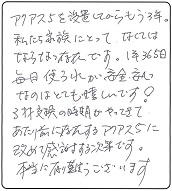 アクアス5を設置してからもう3年。
私たち家族にとって、なくては
ならない存在です。1年365日
毎日使うれか、安全、安心
なのはとても嬉しいです!
3材交換の時期がやってきて
あたり前に存在するアクアス5に
改めて感謝する次第です。
本当に有難うございます